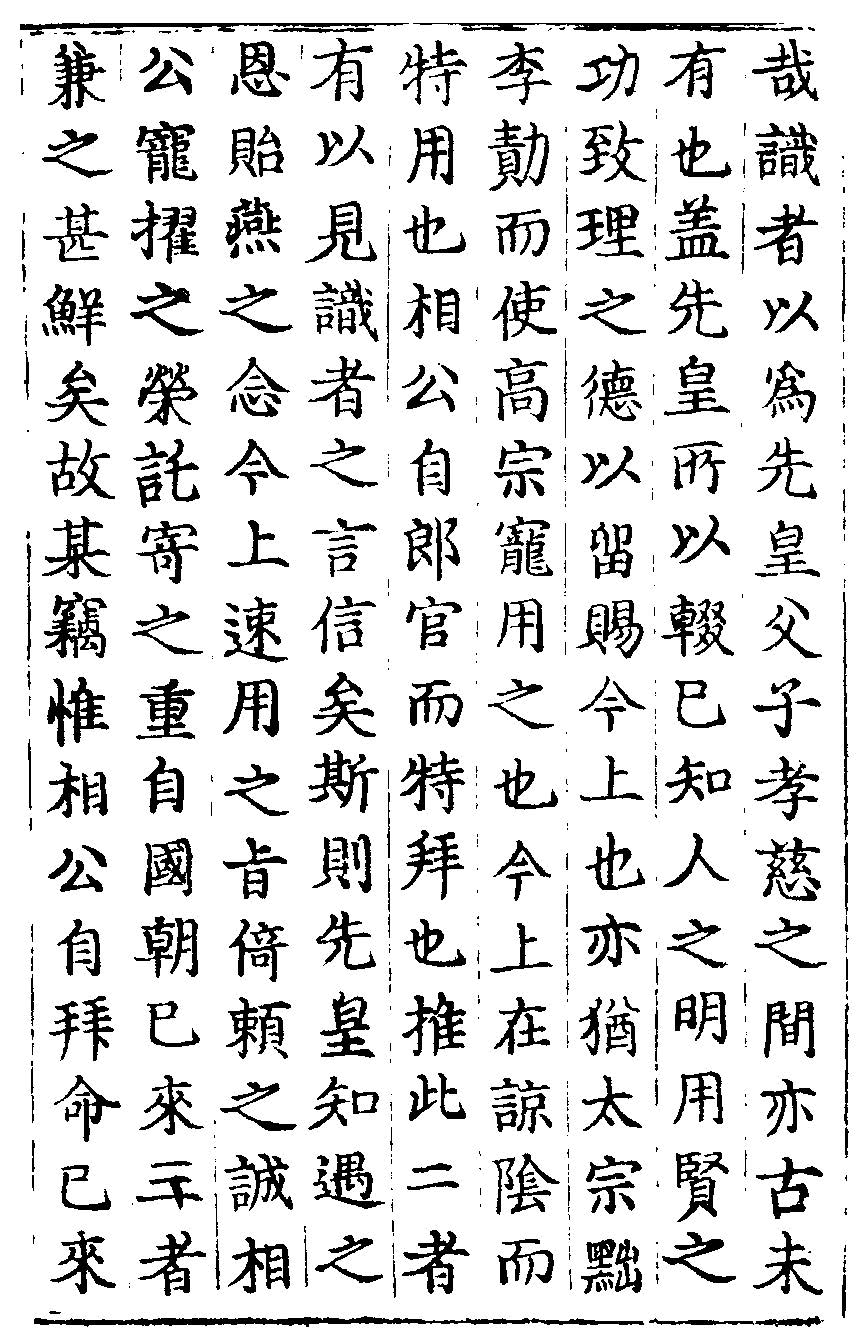 哉識者以為先皇父子孝慈之間亦古未
有也盖先皇所以輟已知人之明用賢之
功致理之德以留賜今上也亦猶太宗黜
李勣而使高宗寵用之也今上在諒陰而
特用也相公自郎官而特拜也推此二者
有以見識者之言信矣斯則先皇知遇之
恩貽燕之念今上速用之旨倚賴之誠相
公寵擢之榮託寄之重自國朝已來二者
兼之甚鮮矣故某竊惟相公自拜命已來